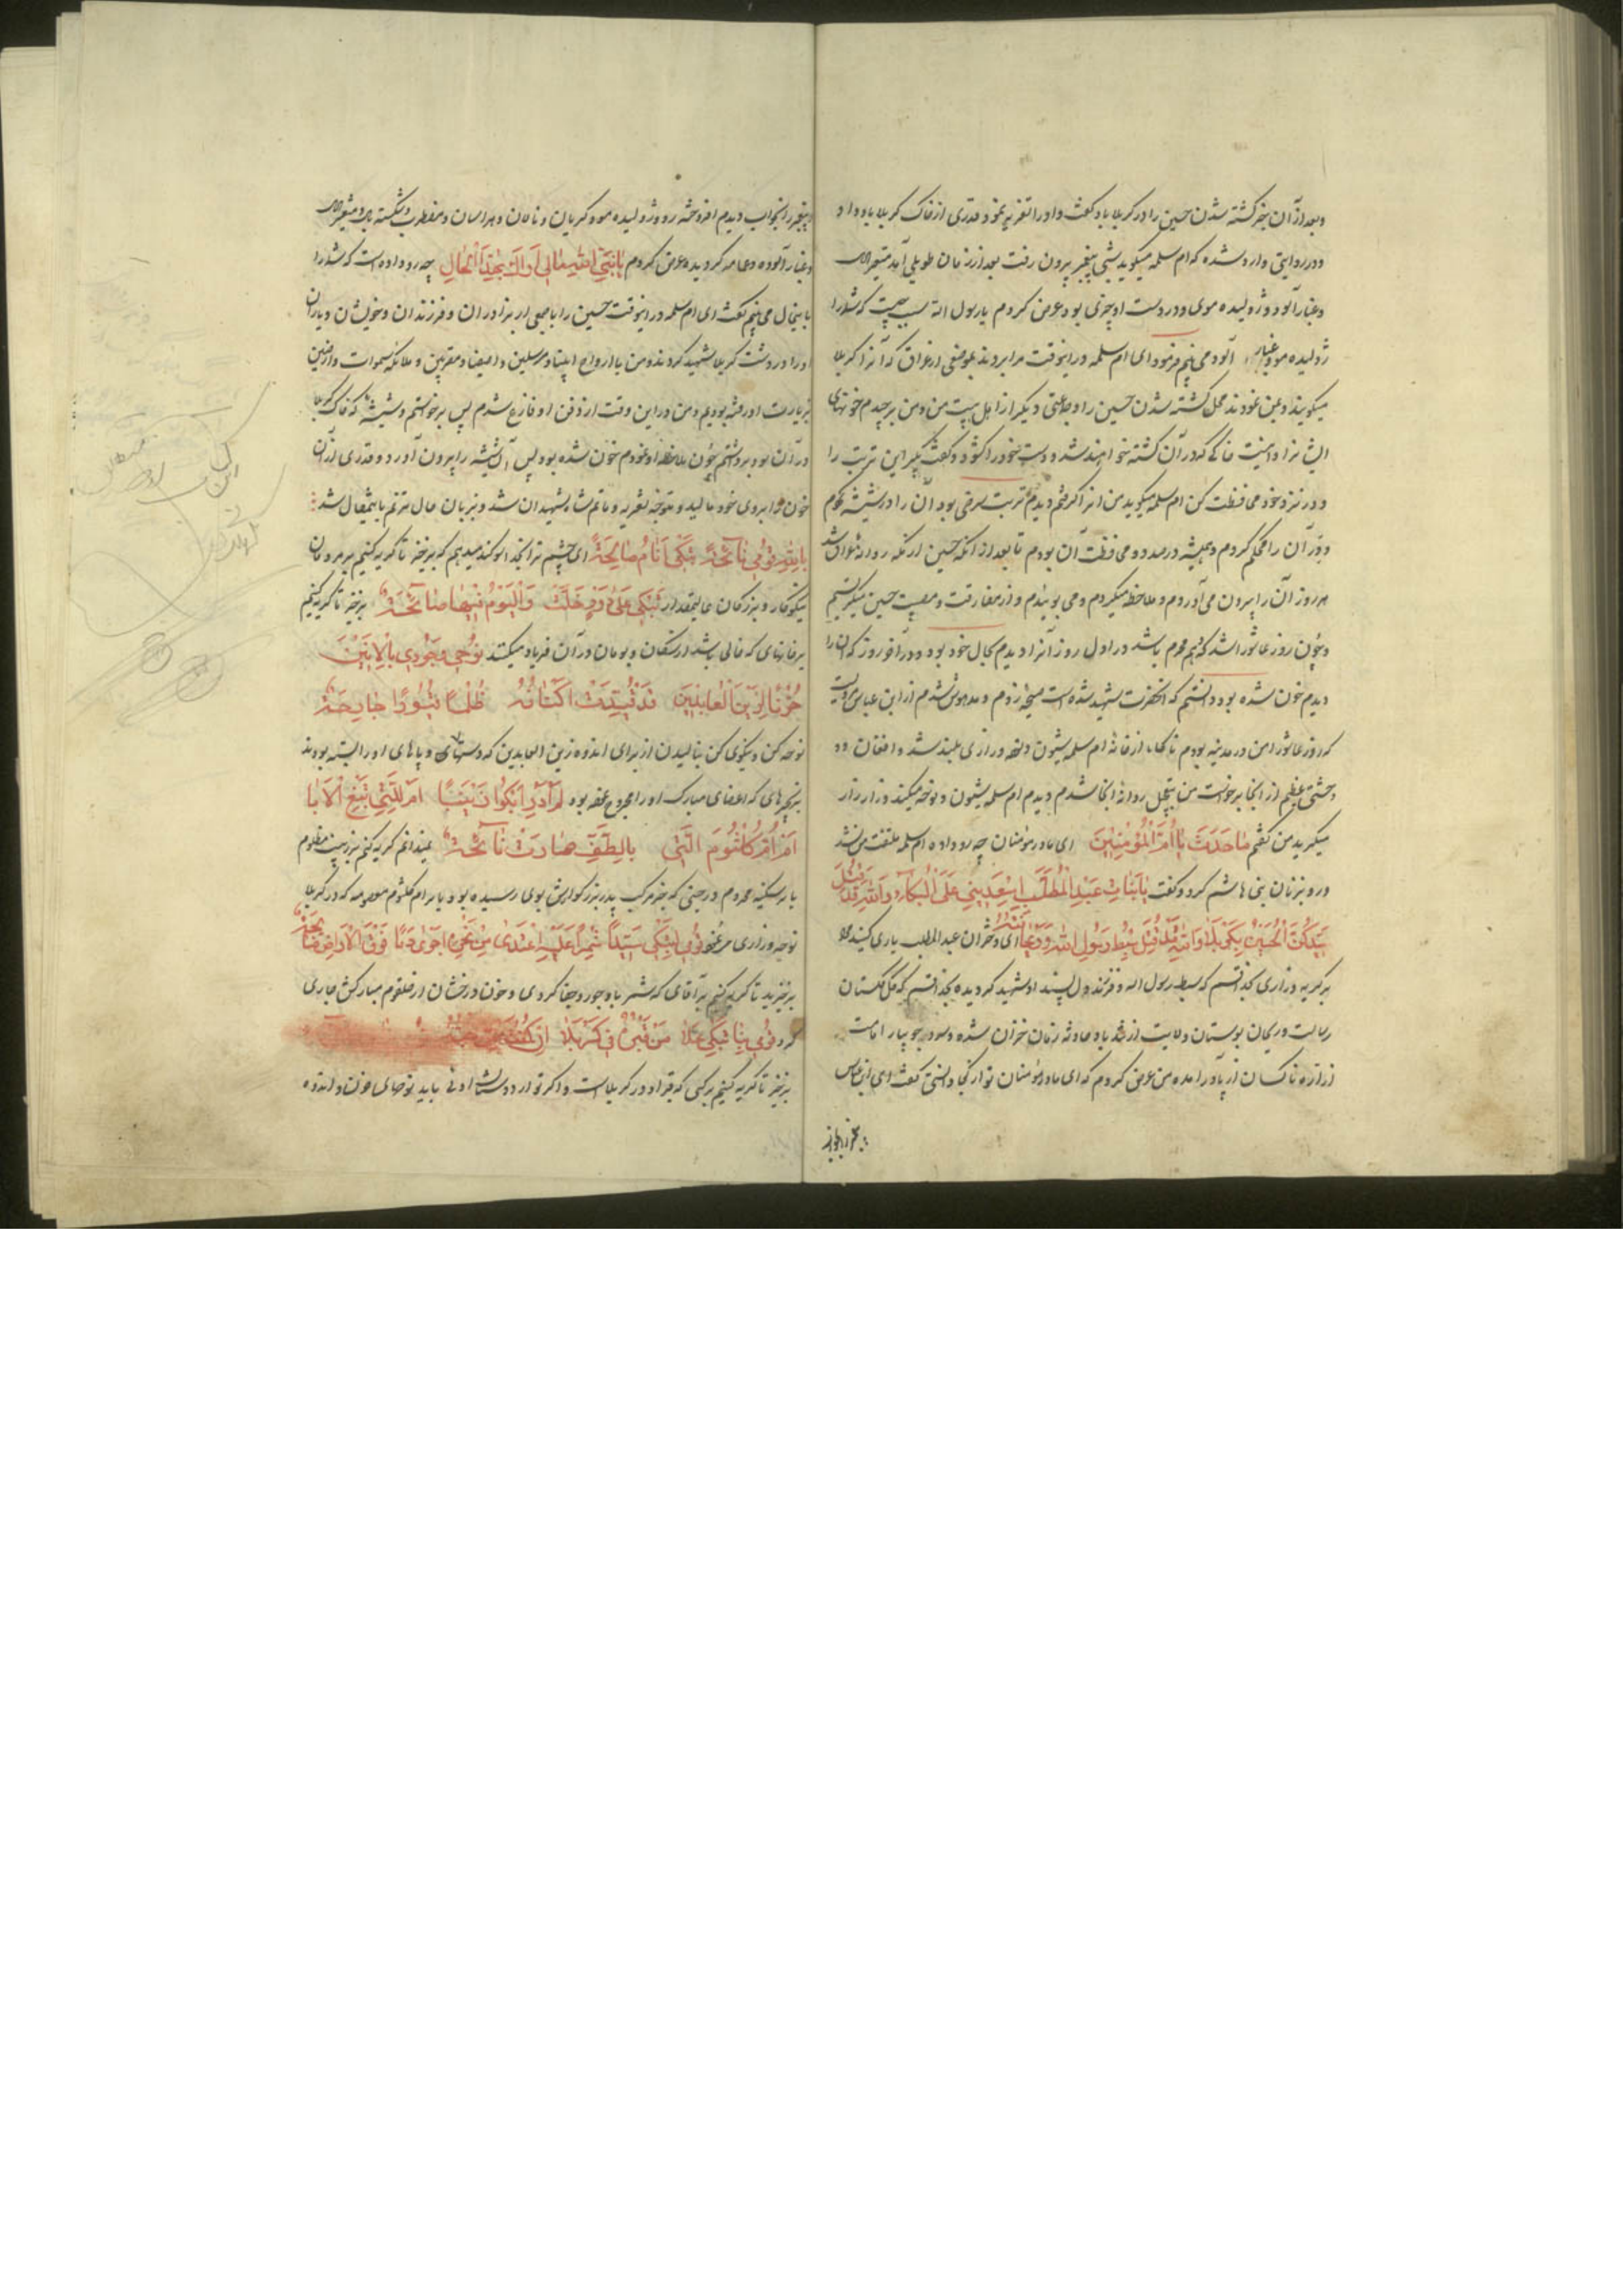 وبعد از آن خبر کشته شدن حسین را در کربلا باو گفت و او را تعزیه نمود و قدری از خاک کربلا باو داد
و در روایتی وارد شده که ام سلمه میگوید شبی پیغمبر بیرون رفت بعد از زمان طویلی آمد متغیر
و غبار آلود و ژولیده موی و در دست او چیزی بود عرض کردم یا رسول الله سبب چیست که شما را
ژولیده مو و غبار آلود می بینم فرمود ای ام سلمه در اینوقت مرا بردند بموضعی از عراق که آنرا کربلا
میگویند و بمن نمودند محل کشته شدن حسین را و جماعتی دیگر از اهل بیت من و من برچیدم خونهای
ایشانرا و اینست خاکی که در آن کشته خواهند شد و دست خود را گشود و گفت بگیر این تربت را
و در نزد خود محافظت کن ام سلمه میگوید من آنرا گرفتم دیدم تربت سرخی بود آن را در شیشه کردم
و در آن را محکم کردم و همیشه در صدد محافظت آن بودم تا بعد از آنکه حسین از مکه روانه عراق شد
هر روز آن را بیرون می آوردم و ملاحظه میکردم و می بوئیدم و از مفارقت و مصیبت حسین میگریستم
و چون روز عاشورا شد که دهم محرم باشد در اول روز آنرا دیدم بحال خود بود و در آخر روز که آن را
دیدم خون شده بود دانستم که آنحضرت شهید شده است صیحه زدم و مدهوش شدم از ابن عباس مرویست
که روز عاشورا من در مدینه بودم ناگاه از خانه ام سلمه شیون و نوحه و زاری بلند شد و افغان و
وحشتی عظیم از آنجا برخواست من بتعجیل روانه آنجا شدم دیدم ام سلمه شیون و نوحه میکند و زار زار
میگرید من گفتم مَا حَدَثَ يَا أُمَّ الْمُؤْمِنِينَ ای مادر مؤمنان چه رو داده ام سلمه ملتفت من نشد
و رو بزنان بنی هاشم کرد و گفت يَا بَنَاتِ عَبْدِ الْمُطَّلِبِ اِسْعَدِينِي عَلَى الْبُكَاءِ وَاللّٰهِ قَدْ قُتِلَ
سَيِّدُكُنَّ الْحُسَيْنُ بِكَرْبَلَا وَاللّٰهِ قَدْ قُتِلَ سِبْطُ رَسُولِ اللّٰهِ وَرَيْحَانَتُهُ ای دختران عبدالمطلب یاری کنید مرا
بر گریه و زاری بخدا قسم که سبط رسول الله و فرزند دل پسند او شهید گردیده بخدا قسم که گل گلستان
رسالت و ریحان بوستان ولایت از تندباد حادثه زمان خزان شده و سرو جویبار امامت
از اره ناکسان از پا در آمده من عرض کردم که ای مادر مؤمنان تو از کجا دانستی گفت ای ابن عباس
پیغمبر را بخواب دیدم افروخته رو و ژولیده مو و گریان و نالان و هراسان و مضطرب و شکسته بال و متغیر
و غبار آلوده و عمامه گردیده عرض کردم يَا نَبِيَّ اللّٰهِ مَا لِي أَرَاكَ بِهٰذَا الْحَالِ چه رو داده است که شما را
باینحال می بینم گفت ای ام سلمه در اینوقت حسین را با جمعی از برادران و فرزندان و خویشان و یاران
او را در دشت کربلا شهید کردند و من با ارواح انبیاء و مرسلین و اصفیاء و مقربین و ملائکه سموات و ارضین
بزیارت او رفته بودیم و من در این وقت از دفن او فارغ شدم پس برخواستم و شیشه که خاک کربلا
در آن بود برداشتم چون ملاحظه او نمودم خون شده بود پس آن شیشه را بیرون آورد و قدری از آن
خون را بروی خود مالید و متوجه تعزیه و ماتم شاه شهیدان شد و بزبان حال مترنم باینمقال شد
ای چشم ترا بخدا سوگند میدهم که برخیز تا گریه کنیم بر مردمان
نیکوکار و بزرگان عالیمقدار تَبْكِي عَلَى دُورٍ خَلَتْ وَالْيَوْمُ فِيهَا صَائِحَةٌ برخیز تا گریه کنیم
بر خانهای که خالی باشد از سکان و بومان در آن فریاد میکنند نُوحِي وَجُودِي بِالْأَنِينَ
حُزْنًا لِزَيْنِ الْعَابِدِينَ قَدْ قُيِّدَتْ أَكْتَافُهُ ظُلْمًا قُيُودًا جَارِحَةٌ
نوحه کن و نیکوی کن بنالیدن از برای اندوه زین العابدین که دستهای و پاهای او را بسته بودند
بزنجیرهای که اعضای مبارک او را مجروح نموده بود لَمْ أَدْرِ أَبْكِي زَيْنَبًا أَمْ لِلَّتِي
أَمْ أُمَّ كُلْثُومَ الَّتِي بِالطَّفِّ صَارَتْ نَائِحَةً نمیدانم گریه کنم بر زینب مظلوم
یا بر سکینه محروم در حینی که خبر مرگ پدر بزرگوارش بوی رسیده بود یا بر ام کلثوم معصومه که در کربلا
نوحه و زاری می نمود قُومِي لِنَبْكِي سَيِّدًا شِمْرٌ عَلَيْهِ اعْتَدَى مِنْ نَحْرِهِ أَجْرَى دَمًا فَوْقَ الْأَرَاضِي
برخیزید تا گریه کنیم بر آقای که شمر باو جور و جفا کردی و خون درخشان از حلقوم مبارکش جاری
کرد قُومِي بِنَا نَبْكِي عَلَى مَنْ قَبْرُهُ فِي كَرْبَلَا اِنْ كُنْتِ
برخیز تا گریه کنیم بر کسی که قبر او در کربلاست و اگر تو از دوستان اوئی باید نوحهای حزن و اندوه